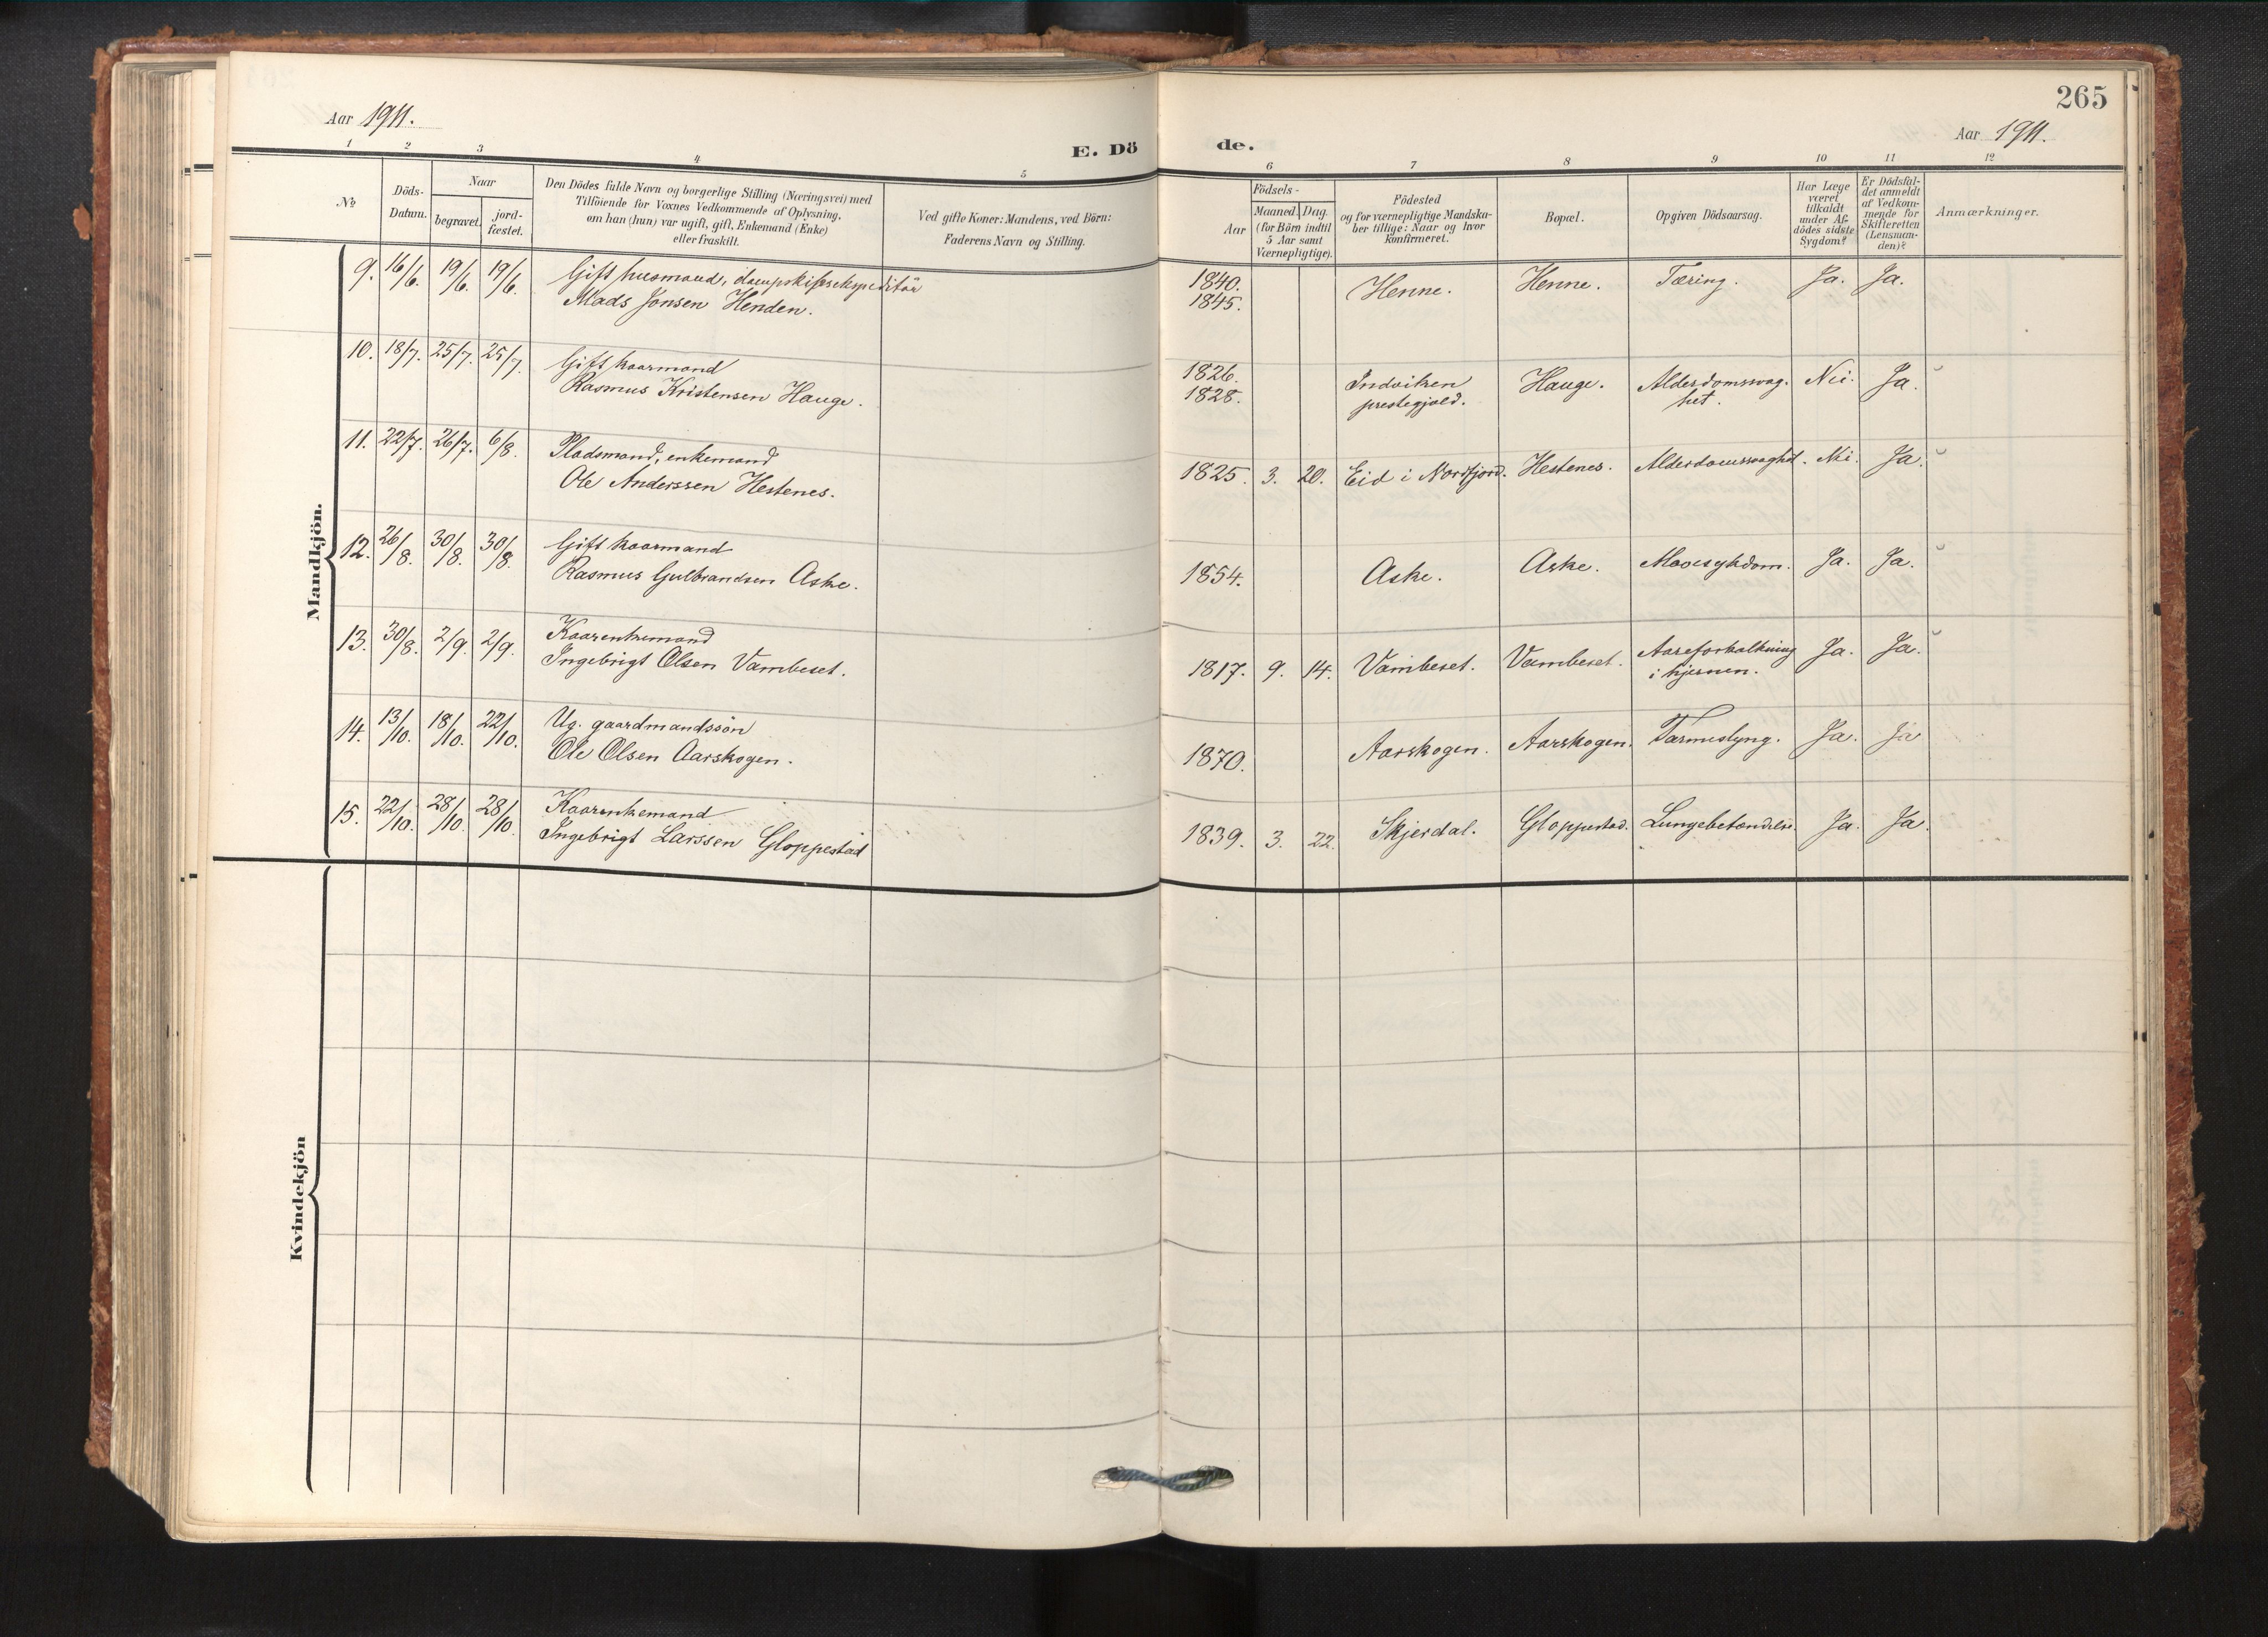 265
Aar 1911.
E. Dö de.
Aar 1911.
1 2 3 4 5 6 7 8 9 10 11 12
№
Döds-
Datum.
Naar
begravet.
jord-
fæstet.
Den Dödes fulde Navn og borgerlige Stilling (Næringsvei) med
Tilföiende for Voxnes Vedkommende af Oplysning,
om han (hun) var ugift, gift, Enkemand (Enke)
eller fraskilt.
Ved gifte Koner: Mandens, ved Börn:
Faderens Navn og Stilling.
Födsels-
Aar
Maaned. Dag.
(for Börn indtil
5 Aar samt
Værnepligtige).
Födested
og for værnepligtige Mandska-
ber tillige: Naar og hvor
konfirmeret.
Bopæl.
Opgiven Dödsaarsag.
Har Læge
været
tilkaldt
under Af-
dödes sidste
Sygdom?
Er Dödsfal-
det anmeldt
af Vedkom-
mende for
Skifteretten
(Lensman-
den)?
Anmærkninger.
Mandkjön.
9. 16/6. 19/6. 19/6. Gift husmand, dampskibsekspeditör
Mads Jonsen Henden.
1840.
1845.
Henne. Henne. Tæring. Ja. Ja.
10. 18/7. 25/7. 25/7. Gift kaarmand
Rasmus Kristensen Hauge.
1826.
1828.
Indviken
prestegjeld.
Hauge. Alderdomssvag-
het.
Nei. Ja.
11. 22/7. 26/7. 6/8. Pladsmand, enkemand
Ole Anderssen Hestenes.
1825. 3. 20. Eid i Nordfjord. Hestenes. Alderdomssvaghet. Nei. Ja.
12. 26/8. 30/8. 30/8. Gift kaarmand
Rasmus Gulbrandsen Aske.
1854. Aske. Aske. Mavesykdom. Ja. Ja.
13. 30/8. 2/9. 2/9. Kaarenkemand
Ingebrigt Olsen Vambeset.
1817. 9. 14. Vambeset. Vambeset. Aareforkalkning
i hjernen.
Ja. Ja.
14. 13/10. 18/10. 22/10. Ug. gaardmandssön
Ole Olsen Aarskogen.
1870. Aarskogen. Aarskogen. Tarmeslyng. Ja. Ja
15. 22/10. 28/10. 28/10. Kaarenkemand
Ingebrigt Larssen Gloppestad
1839. 3. 22. Skjerdal. Gloppestad. Lungebetændelse. Ja. Ja
Kvindekjön